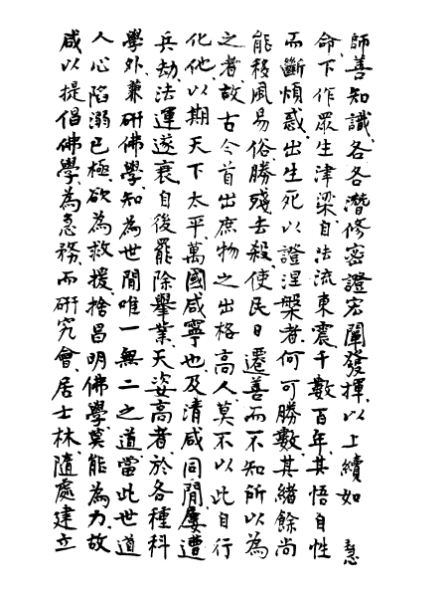 師善知識各各潛修密證宏闡發揮以上續如
命下作眾生津梁自法流東震千數百年其悟自性
而斷煩惑出生死以證涅槃者何可勝數其緒餘尚
能移風易俗勝殘去殺使民日遷善而不知所以為
之者故古今首出庶物之出格高人莫不以此自行
化他以期天下太平萬國咸寧也及清咸同間屢遭
兵劫法運遂衰自後罷除舉業天姿高者於各種科
學外兼研佛學知為世間唯一無二之道當此世道
人心陷溺已極欲為救援捨昌明佛學莫能為力故
咸以提倡佛學為急務而研究會居士林隨處建立
慧